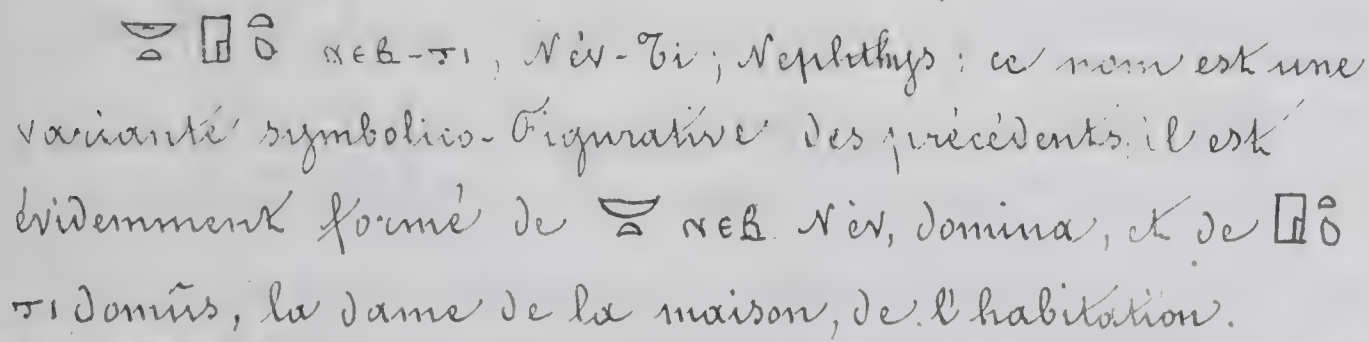 𓎟𓏏 𓉗 𓏏𓆇 ⲛⲉⲃ-ϯⲓ, Nèv-Ti; Nephthys: ce nom est une
variante symbolico-Figurative des précédents. il est
évidemment formé de 𓎟𓏏 ⲛⲉⲃ Nèv, domina, et de 𓉗𓏏𓆇
ⲧⲓ domûs, la dame de la maison, de l'habitation.